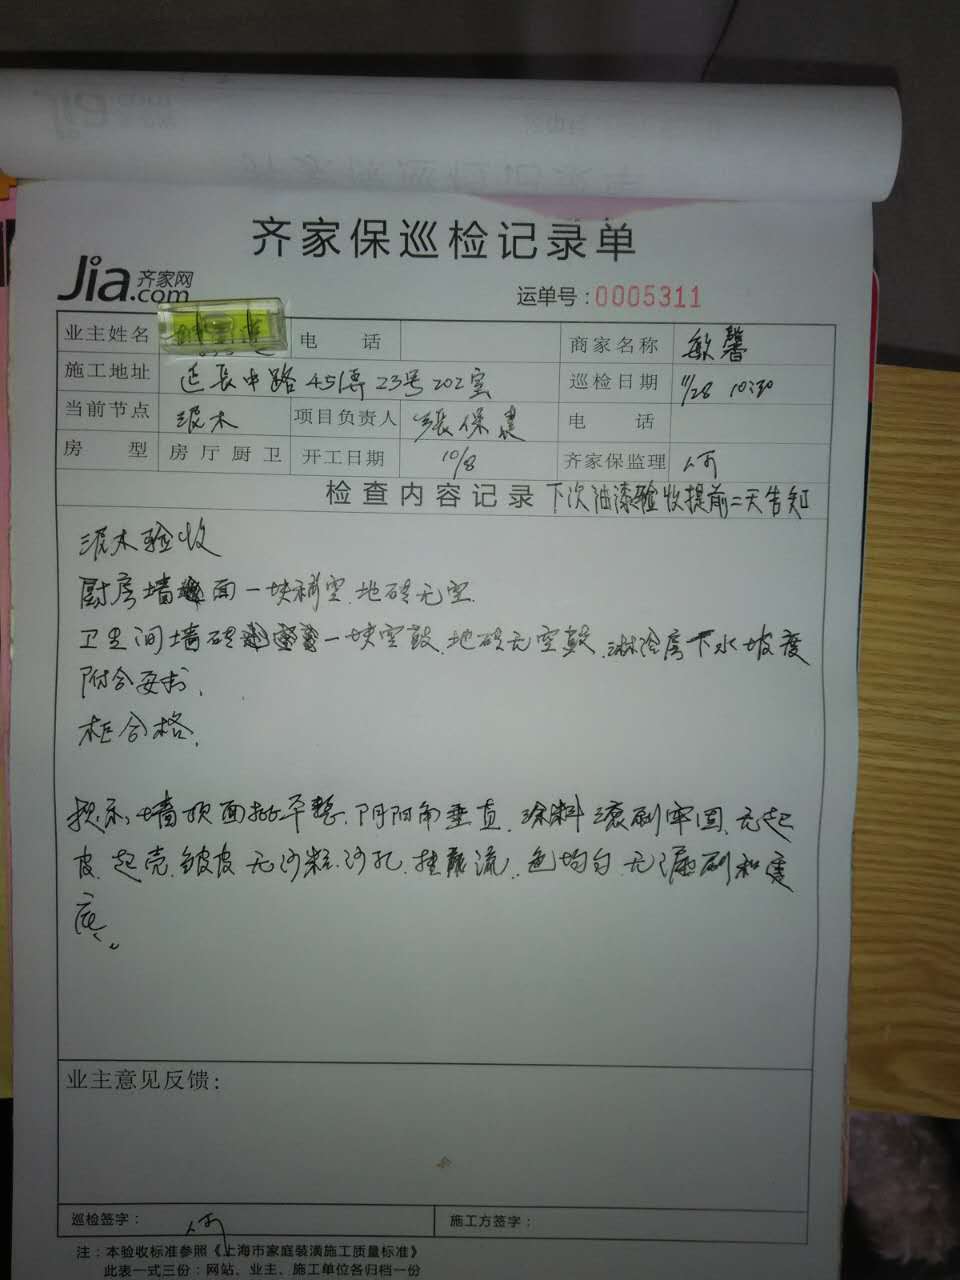 齐家保巡检记录单
Jia.com 齐家网
运单号:0005311
业主姓名 电 话 商家名称 敏馨
施工地址 延长中路451弄23号202室 巡检日期 11/28 10:30
当前节点 泥木 项目负责人 张保建 电 话
房 型 房 厅 厨 卫 开工日期 10/8 齐家保监理 何
检查内容记录 下次油漆验收提前二天告知
泥木验收
厨房墙面一块稍空.地砖无空.
卫生间墙砖一块空鼓.地砖无空鼓.淋冷房下水坡度
附合要求.
柜合格.
提示:墙顶面批平整.阴阳角垂直.涂料滚刷牢固.无起
皮.起壳.皱皮.无沙粒.沙孔.挂流.色均匀.无漏刷和透
底.
业主意见反馈:
巡检签字: 何 施工方签字:
注:本验收标准参照《上海市家庭装潢施工质量标准》
此表一式三份:网站、业主、施工单位各归档一份